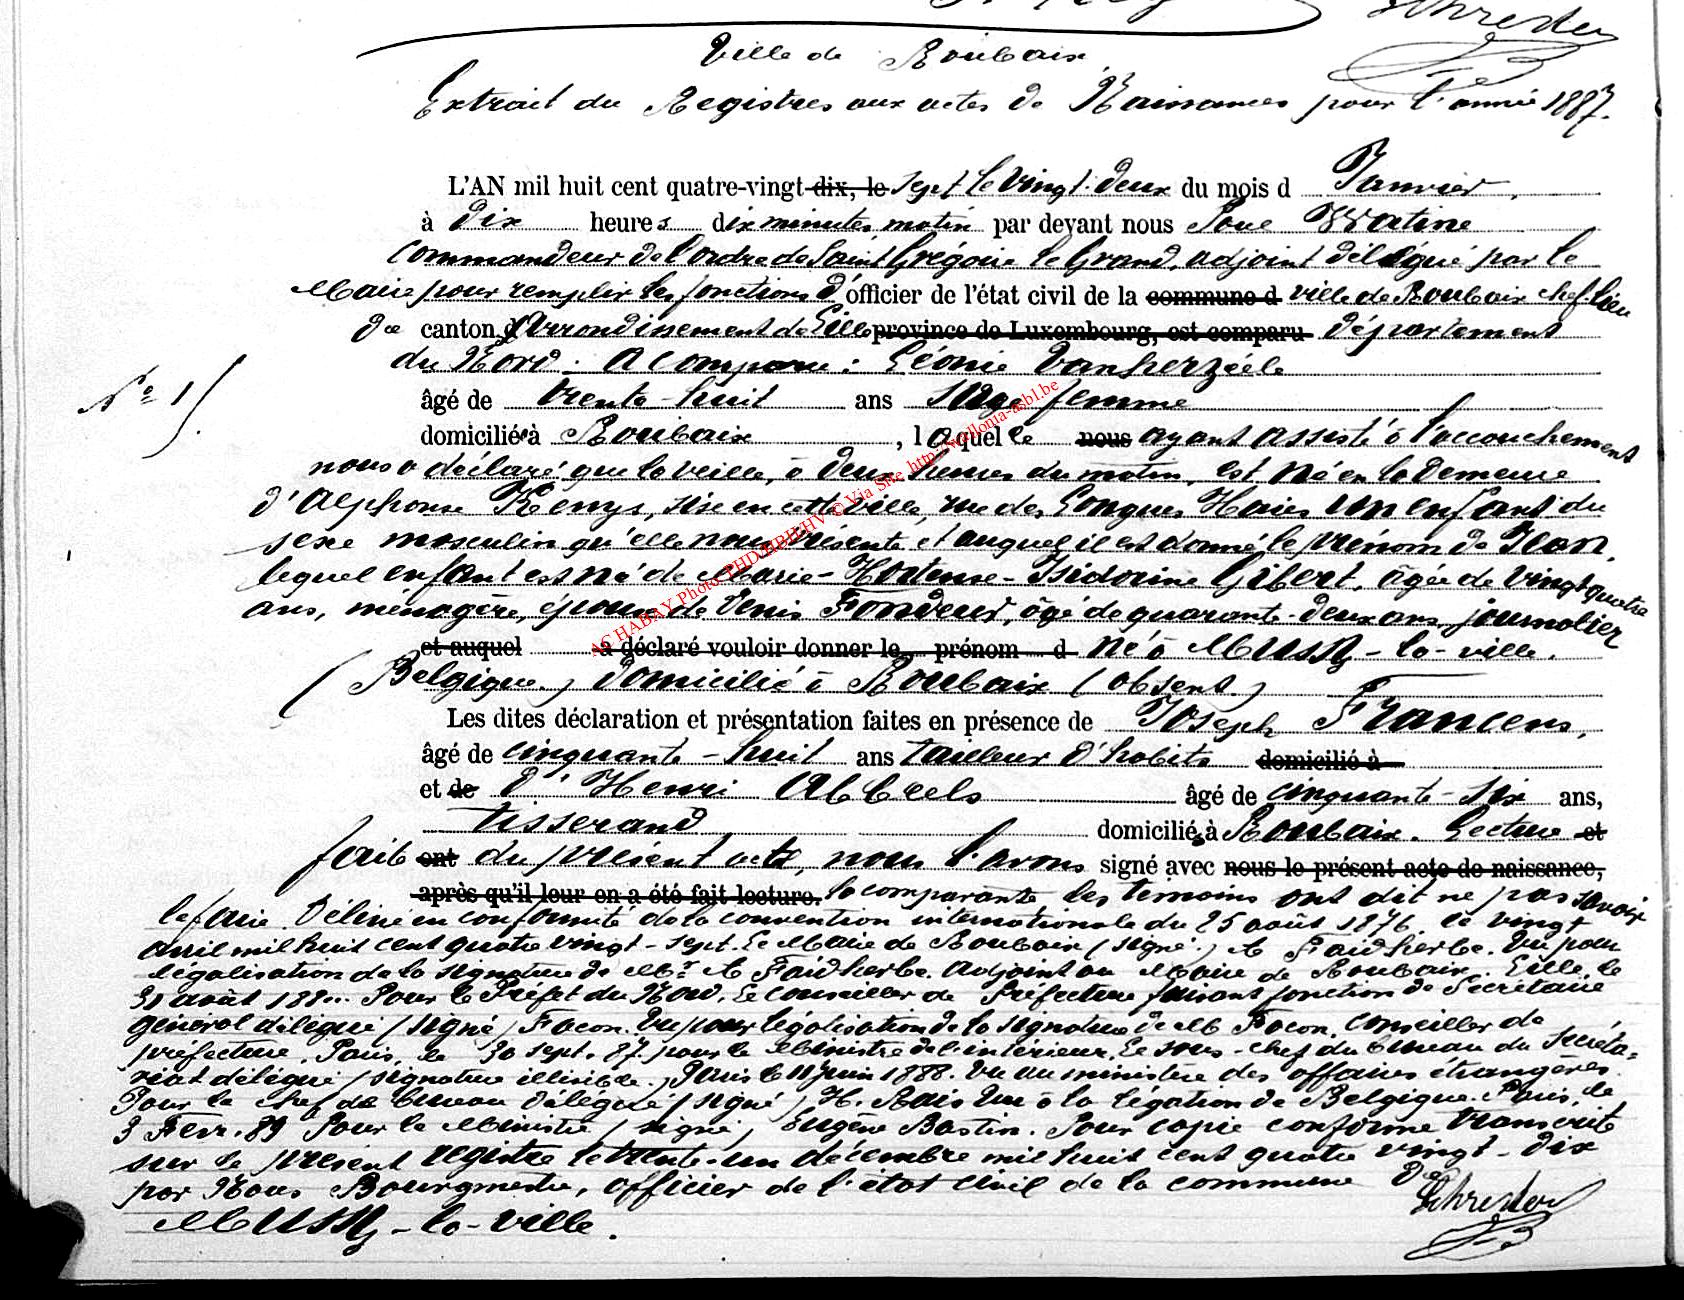 Schreder
Ville de Roubaix
Extrait du Registres aux actes de Naissances pour l'année 1887.
L'AN mil huit cent quatre-vingt dix, le sept le vingt-deux du mois d Janvier
à dix heures dix minutes matin par devant nous Watine
Commandeur de l'ordre de Saint Grégoire le Grand, adjoint délégué par le
Maire pour remplir les fonctions d'officier de l'état civil de la commune d ville de Roubaix chef-lieu
de canton, d arrondissement de Lille province de Luxembourg, est comparu département
du Nord. A comparu : Léonie Vanherzéele
N° 15.
âgé de trente-huit ans sage femme
domiciliée à Roubaix, laquelle nous ayant assisté à l'accouchement
nous a déclaré que la veille, à deux heures du matin, est né en la demeure
d'Alphonse sise en cette ville, rue des Longues Haies un enfant du
sexe masculin qu'elle nous présente et auquel il est donné le prénom de Jean,
lequel enfant est né de Marie-Hortense-Isidorine Gibert, âgée de vingt quatre
ans, ménagère, épouse de Denis Fondeur, âgé de quarante-deux ans, journalier
et auquel a déclaré vouloir donner le prénom d né à Mussy-la-ville.
(Belgique) domicilié à Roubaix (absent)
Les dites déclaration et présentation faites en présence de Joseph Francens,
âgé de cinquante-huit ans tailleur d'habits domicilié à
et de d'Henri Abbeels âgé de cinquante-six ans,
tisserand domiciliés à Roubaix. Lecture et
faite ont du présent acte, nous l'avons signé avec nous le présent acte de naissance,
après qu'il leur en a été fait lecture. la comparante, les témoins ont dit ne pas savoir
le faire. Délivré en conformité de la convention internationale du 25 août 1876, le vingt
avril mil huit cent quatre vingt-sept. Le Maire de Roubaix (signé) A Faidherbe. Vu pour
légalisation de la signature de Mr A Faidherbe. Adjoint au Maire de Roubaix. Lille, le
31 août 188... Pour le Préfet du Nord, Le conseiller de Préfecture faisant fonction de Secrétaire
général délégué (signé) Facon. Vu pour légalisation de la signature de M Facon, conseiller de
préfecture. Paris, le 30 sept. 87. pour le Ministre de l'intérieur, Le sous-chef du bureau du Secréta=
riat délégué (signature illisible.) Paris le 11 juin 1888. Vu au ministère des affaires étrangères.
Pour le chef de bureau délégué (signé) H. Vu à la légation de Belgique. Paris, le
3 Févr. 89 Pour le Ministre (signé) Eugène Bastin. Pour copie conforme transcrite
sur le présent registre le trente-un décembre mil huit cent quatre vingt-dix
par Nous Bourgmestre, officier de l'état civil de la commune de
Mussy-la-ville.
Schreder
AC HABAY Photo PHD/HBH/HV © Via Site http://wallonia-asbl.be